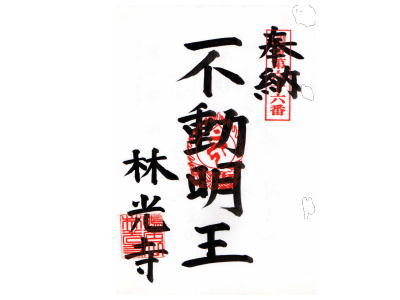 奉納
不動明王
林光寺